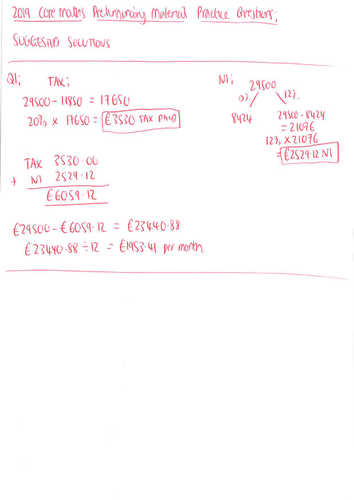 2019 Core Maths Preliminary Material Practice Questions;
SUGGESTED SOLUTIONS
Q1; TAX;
29500 - 11850 = 17650
20% x 17650 = £3530 TAX PAID
NI; 29500
0% 12%
8424 29500 - 8424
= 21076
12% x 21076
= £2529.12 NI
TAX 3530.00
+ NI 2529.12
£6059.12
£29500 - £6059.12 = £23440.88
£23440.88 ÷ 12 = £1953.41 per month